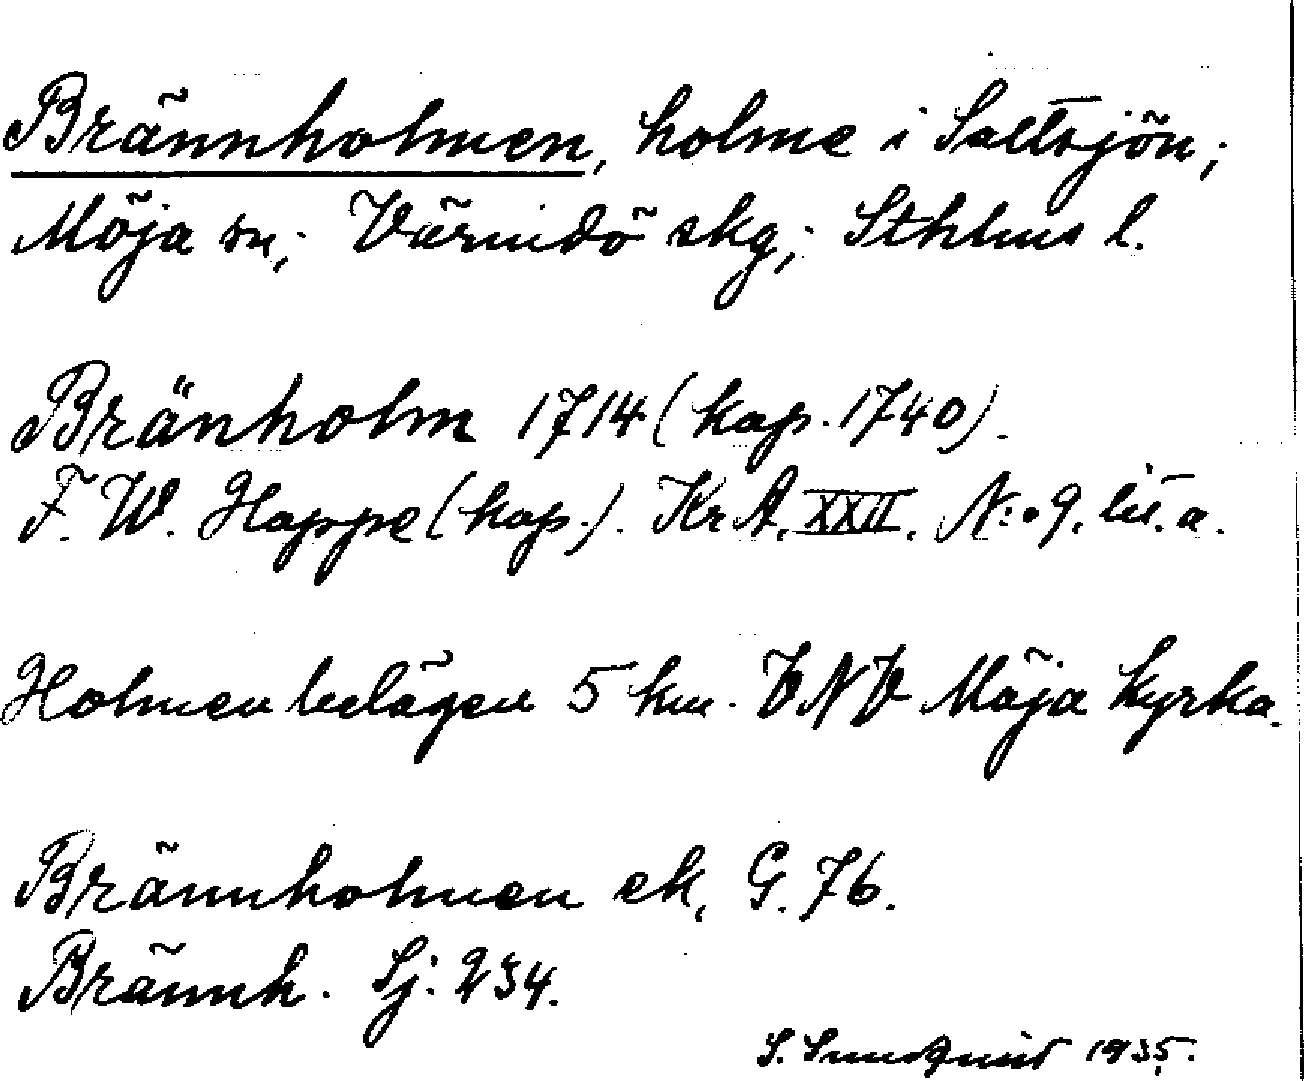 Brännholmen, holme i Saltsjön;
Möja sn; Värmdö skg; Sthlms l.
Bränholm 1714 (kop. 1740).
F. W. Happe (kop.). Kr A. XXII. N:o 9. lit. a.
Holmen belägen 5 km. VNV Möja kyrka.
Brännholmen ek, G. 76.
Brännh. Sj: 234.
S. Sundquist 1935.